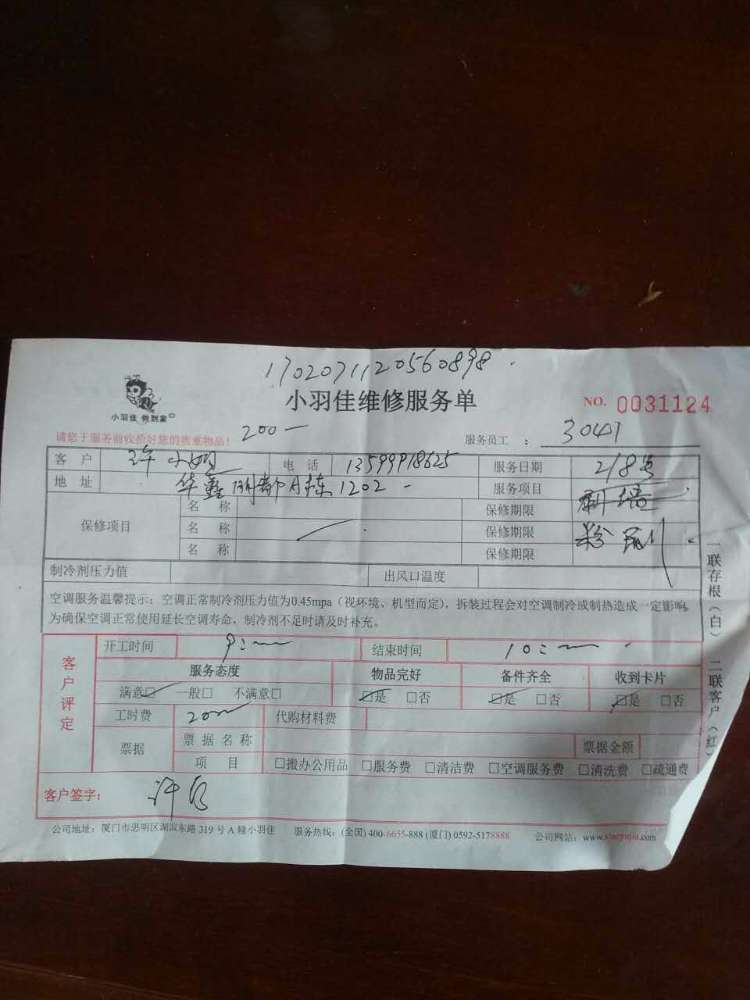 1702071120560898
小羽佳维修服务单
NO. 0031124
小羽佳 到家
请您于服务前收拾好您的贵重物品!
200一
服务员工 : 3041
客 户 许小姐 电 话 13599918625 服务日期 2/8号
地 址 华鑫 1202 服务项目
保修项目 名 称 保修期限
名 称 保修期限 粉刷
名 称 保修期限
制冷剂压力值 出风口温度
空调服务温馨提示：空调正常制冷剂压力值为0.45mpa（视环境、机型而定），拆装过程会对空调制冷或制热造成一定影响。
为确保空调正常使用延长空调寿命，制冷剂不足时请及时补充。
客户评定
开工时间 9: 结束时间 10:
服务态度 物品完好 备件齐全 收到卡片
满意☑ 一般□ 不满意□ ☑是 □否 ☑是 □否 ☑是 □否
工时费 200 代购材料费
票据 票 据 名 称 票据金额
项 目 □搬办公用品 □服务费 □清洁费 □空调服务费 □清洗费 □疏通费
客户签字： 许
公司地址：厦门市思明区湖滨东路 319 号 A 幢小羽佳 服务热线：(全国) 400-6655-888 (厦门) 0592-5178888 公司网站：www.xiaoyujia.com
一联存根（白） 二联客户（红）